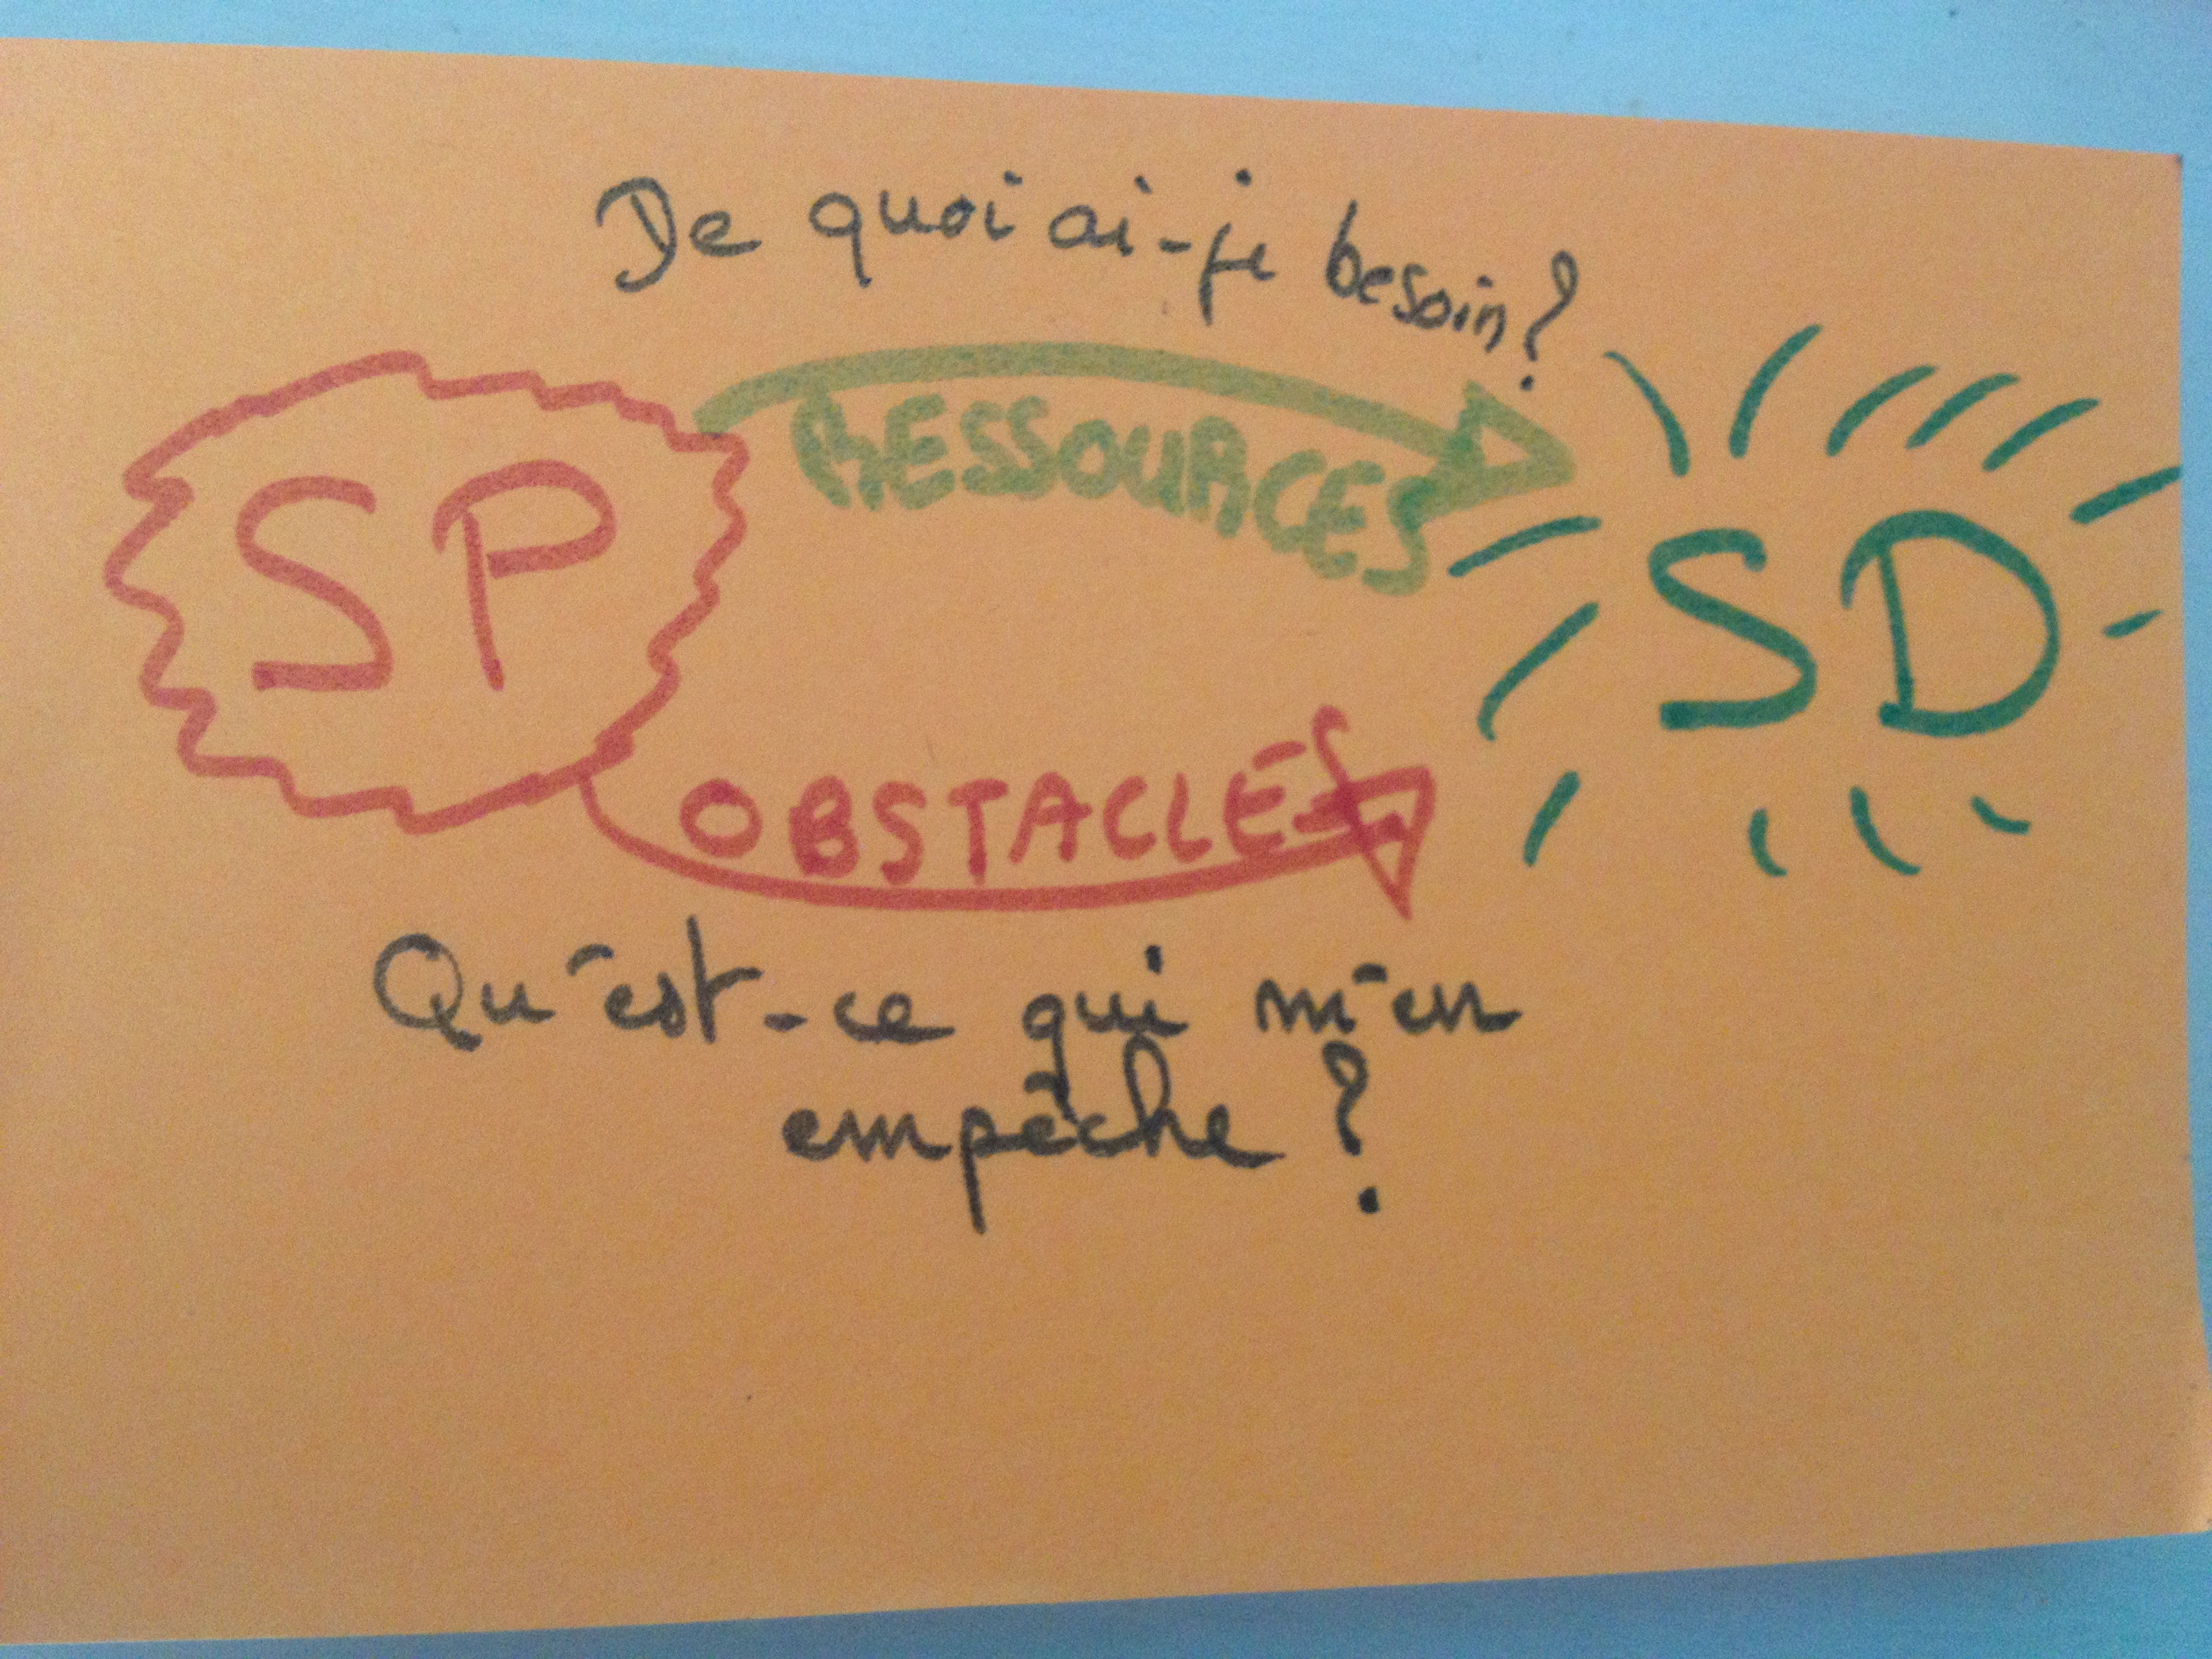 De quoi ai-je besoin ?
RESSOURCES
SP
SD
OBSTACLES
Qu'est-ce qui m'en
empêche ?